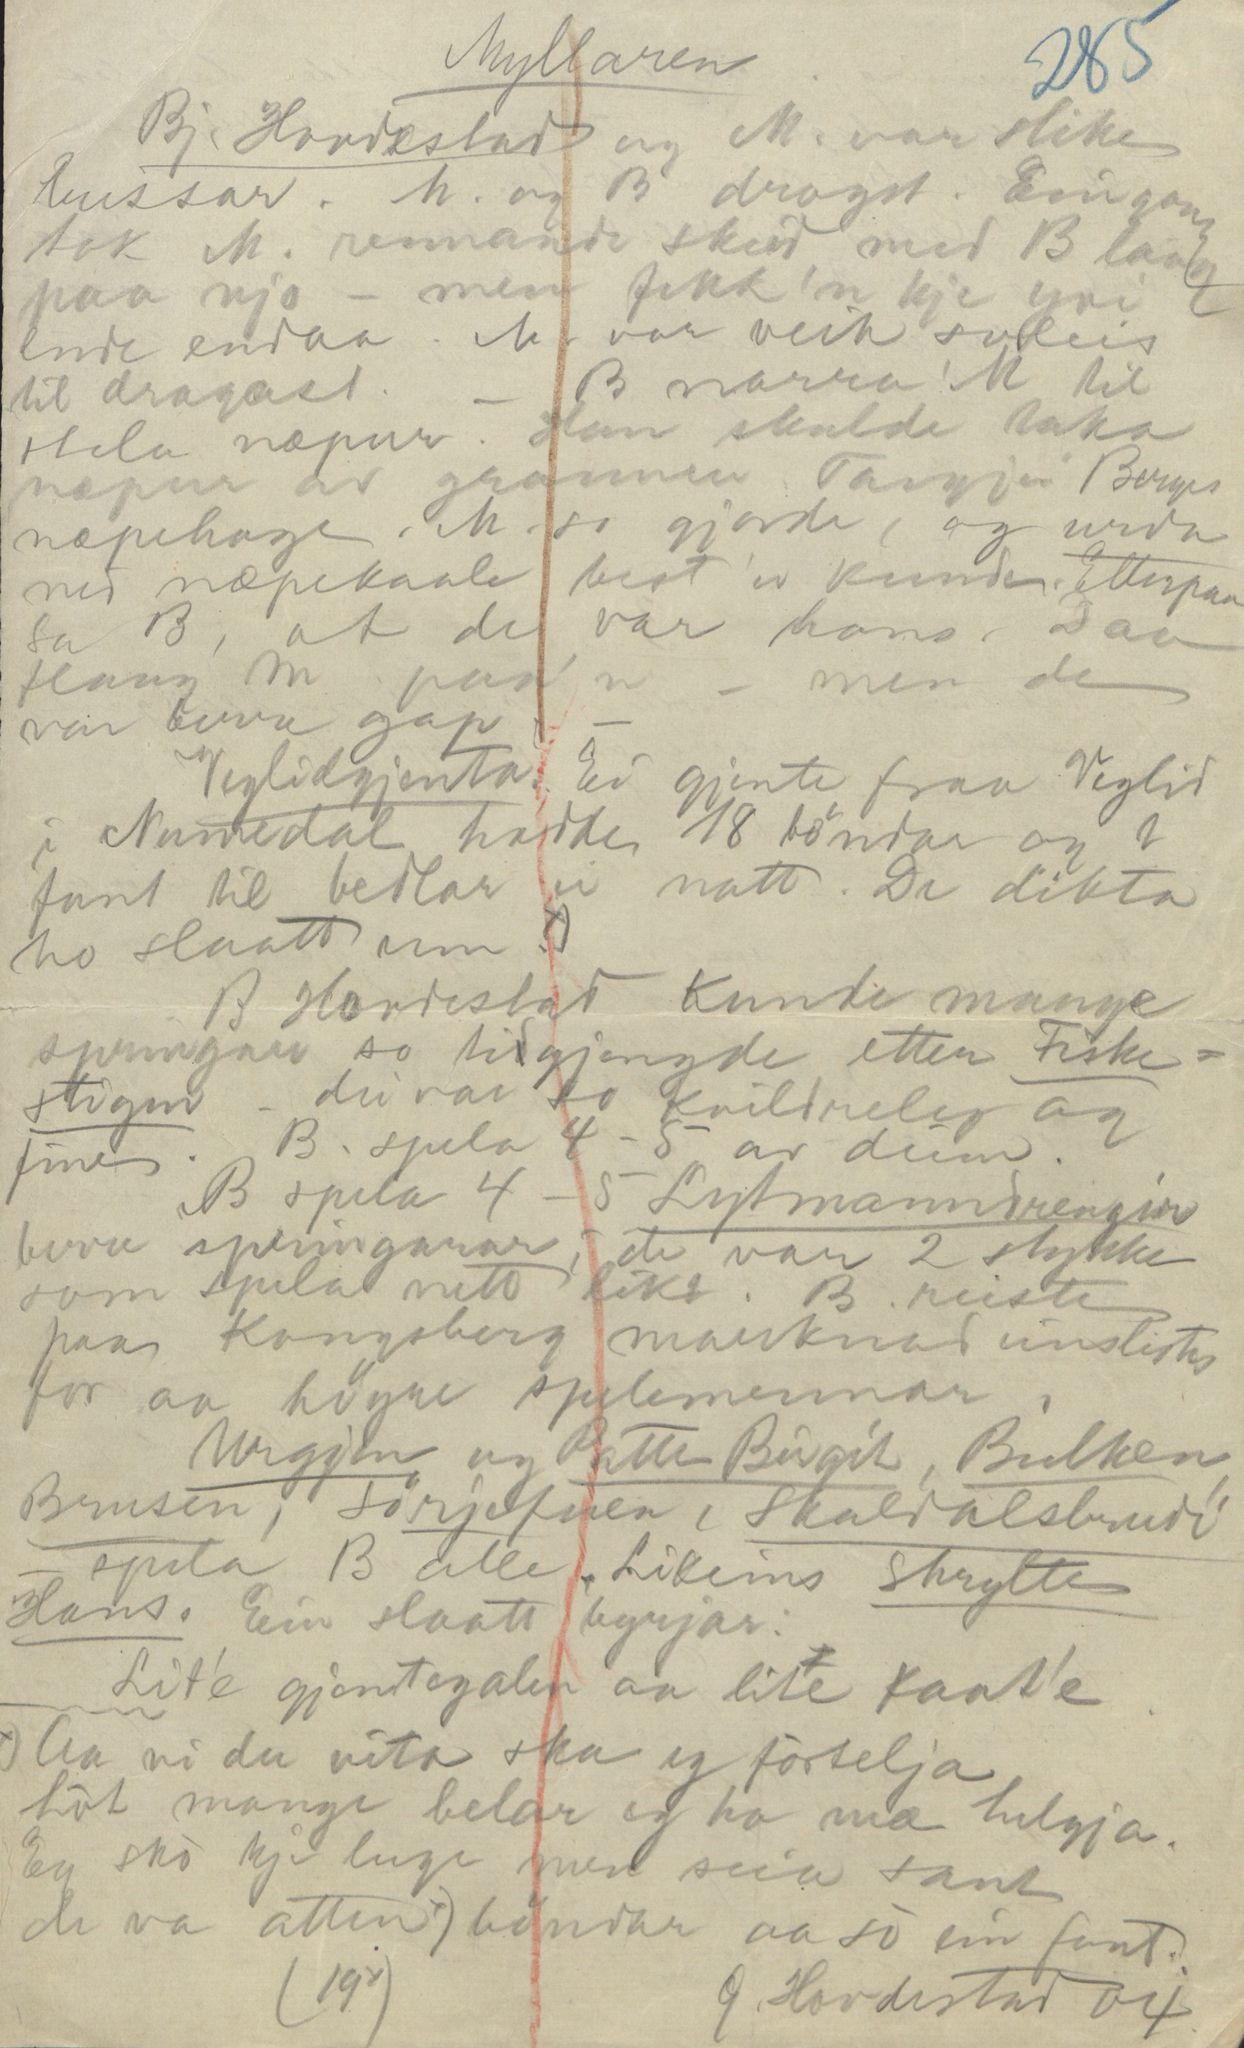 Myllaren
285
Bj. Hovdestad og M. var slike
bussar. M. og B drogst. Ein gong
tok M. rennande skeid med B laag
paa njo - men fekk'n kje yvi
ende endaa. M. var veik soleis
til dragast. - B narra M til
stela næpur. Han skulde taka
næpur av grannen Targjei Borges
næpehage. M. so gjorde, og urda
ned næpekaale best'n kunde. Etterpaa
sa B, at de var hans. Daa
flaug M paa'n - men de
var bere gap. -
Veglidgjenta. Ei gjente fraa Veglid
i Numedal hadde 18 böndar og 1
fant til bedlar ei natt. De dikta
ho slaatt um x)
B Hovdestad kunde mange
springarar so tilgjengde etter Fiske-
stigen - dei var so kvildreleg og
fine. B. spela 4-5 av deim.
B spela 4-5 Lytmanndrengir
bere springarar, de var 2 stykke
som spela nett likt. B. reiste
paa Kongsberg marknad einslects
for aa höyre spelemennar.
Urgjen og Patte Birgit, Bulken,
Brusen, Sörjefuen, Skuldalsbrudi
- spela B alle. Likeins Skrylte
Hans. Ein slaatt byrjar:
Lit'e gjentegalen aa lite kaat'e
x) Aa vi du vita ska eg förtelja
hot mange belar eg ha mæ helgja.
Eg sko kje luge men seia sant
de va atten x) böndar aa so ein fant.
(19 x)
Q. Hovdestad 04